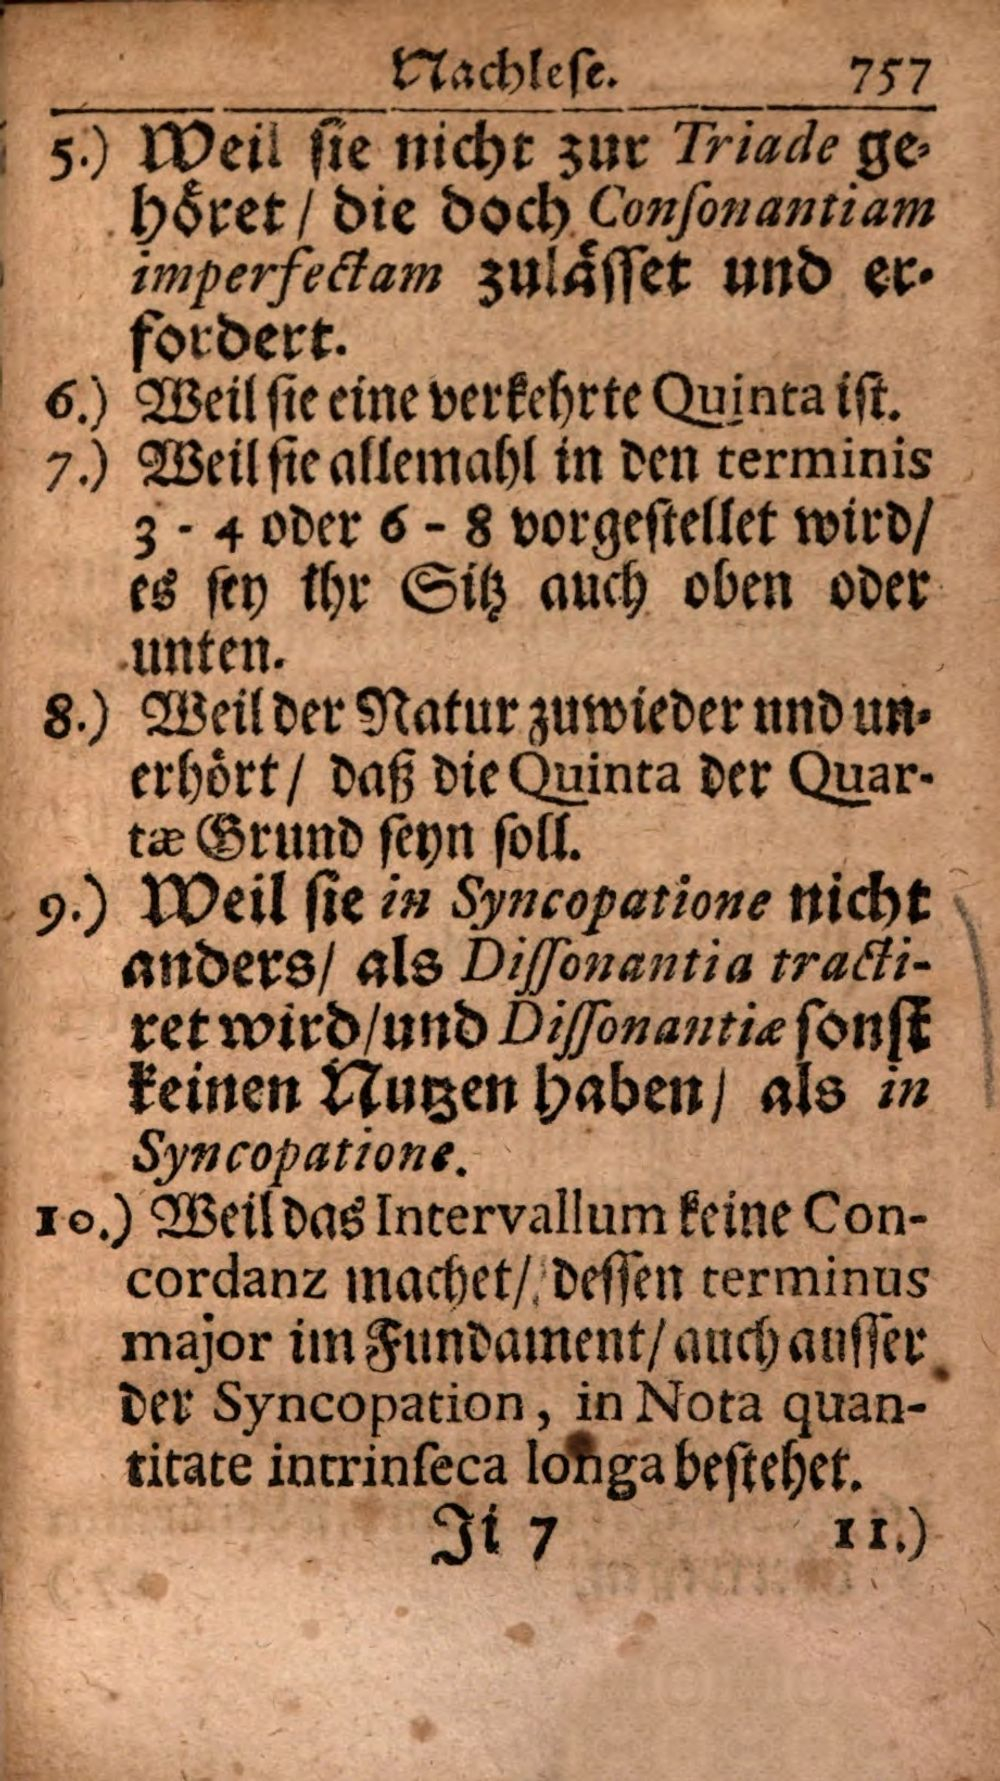 Nachleſe. 757
5.) Weil ſie nicht zur Triade ge-
hoͤret / die doch Conſonantiam
imperfectam zulaͤſſet und er-
fordert.
6.) Weil ſie eine verkehrte Quinta iſt.
7.) Weil ſie allemahl in den terminis
3 - 4 oder 6 - 8 vorgeſtellet wird /
es ſey ihr Sitz auch oben oder
unten.
8.) Weil der Natur zuwieder und un-
erhoͤrt / daß die Quinta der Quar-
tæ Grund ſeyn ſoll.
9.) Weil ſie in Syncopatione nicht
anders / als Diſſonantia tracti-
ret wird / und Diſſonantiæ ſonſt
keinen Nutzen haben / als in
Syncopatione.
10.) Weil das Intervallum keine Con-
cordanz machet / deſſen terminus
major im Fundament / auch auſſer
der Syncopation, in Nota quan-
titate intrinſeca longa beſtehet.
Ji 7 11.)